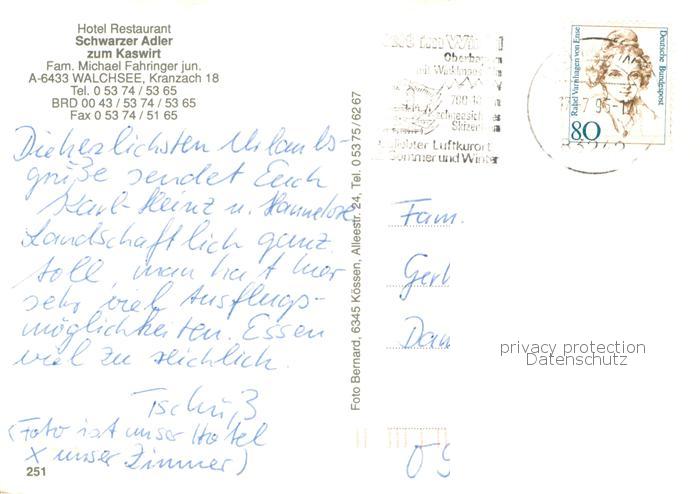 Hotel Restaurant
Schwarzer Adler
zum Kaswirt
Fam. Michael Fahringer jun.
A-6433 WALCHSEE, Kranzach 18
Tel. 0 53 74 / 53 65
BRD 00 43 / 53 74 / 53 65
Fax 0 53 74 / 51 65
Die herzlichsten Urlaubs-
grüße sendet Euch
Karl-Heinz u. Hannelore
Landschaftlich ganz
toll, man hat hier
sehr viel Ausflugs-
möglichkeiten. Essen
viel zu reichlich.
Tschüß
(Foto ist unser Hotel
X unser Zimmer)
251
Foto Bernard, 6345 Kössen, Alleestr. 24, Tel. 0 53 75 / 62 67
Oberbay
mit Waldmann
700-10
schneesich
Skizen
liebter Luftkurort
ommer und Winter
Rahel Varnhagen von Ense
Deutsche Bundespost
80
Fam.
Gerh
Dam
privacy protection
Datenschutz
09